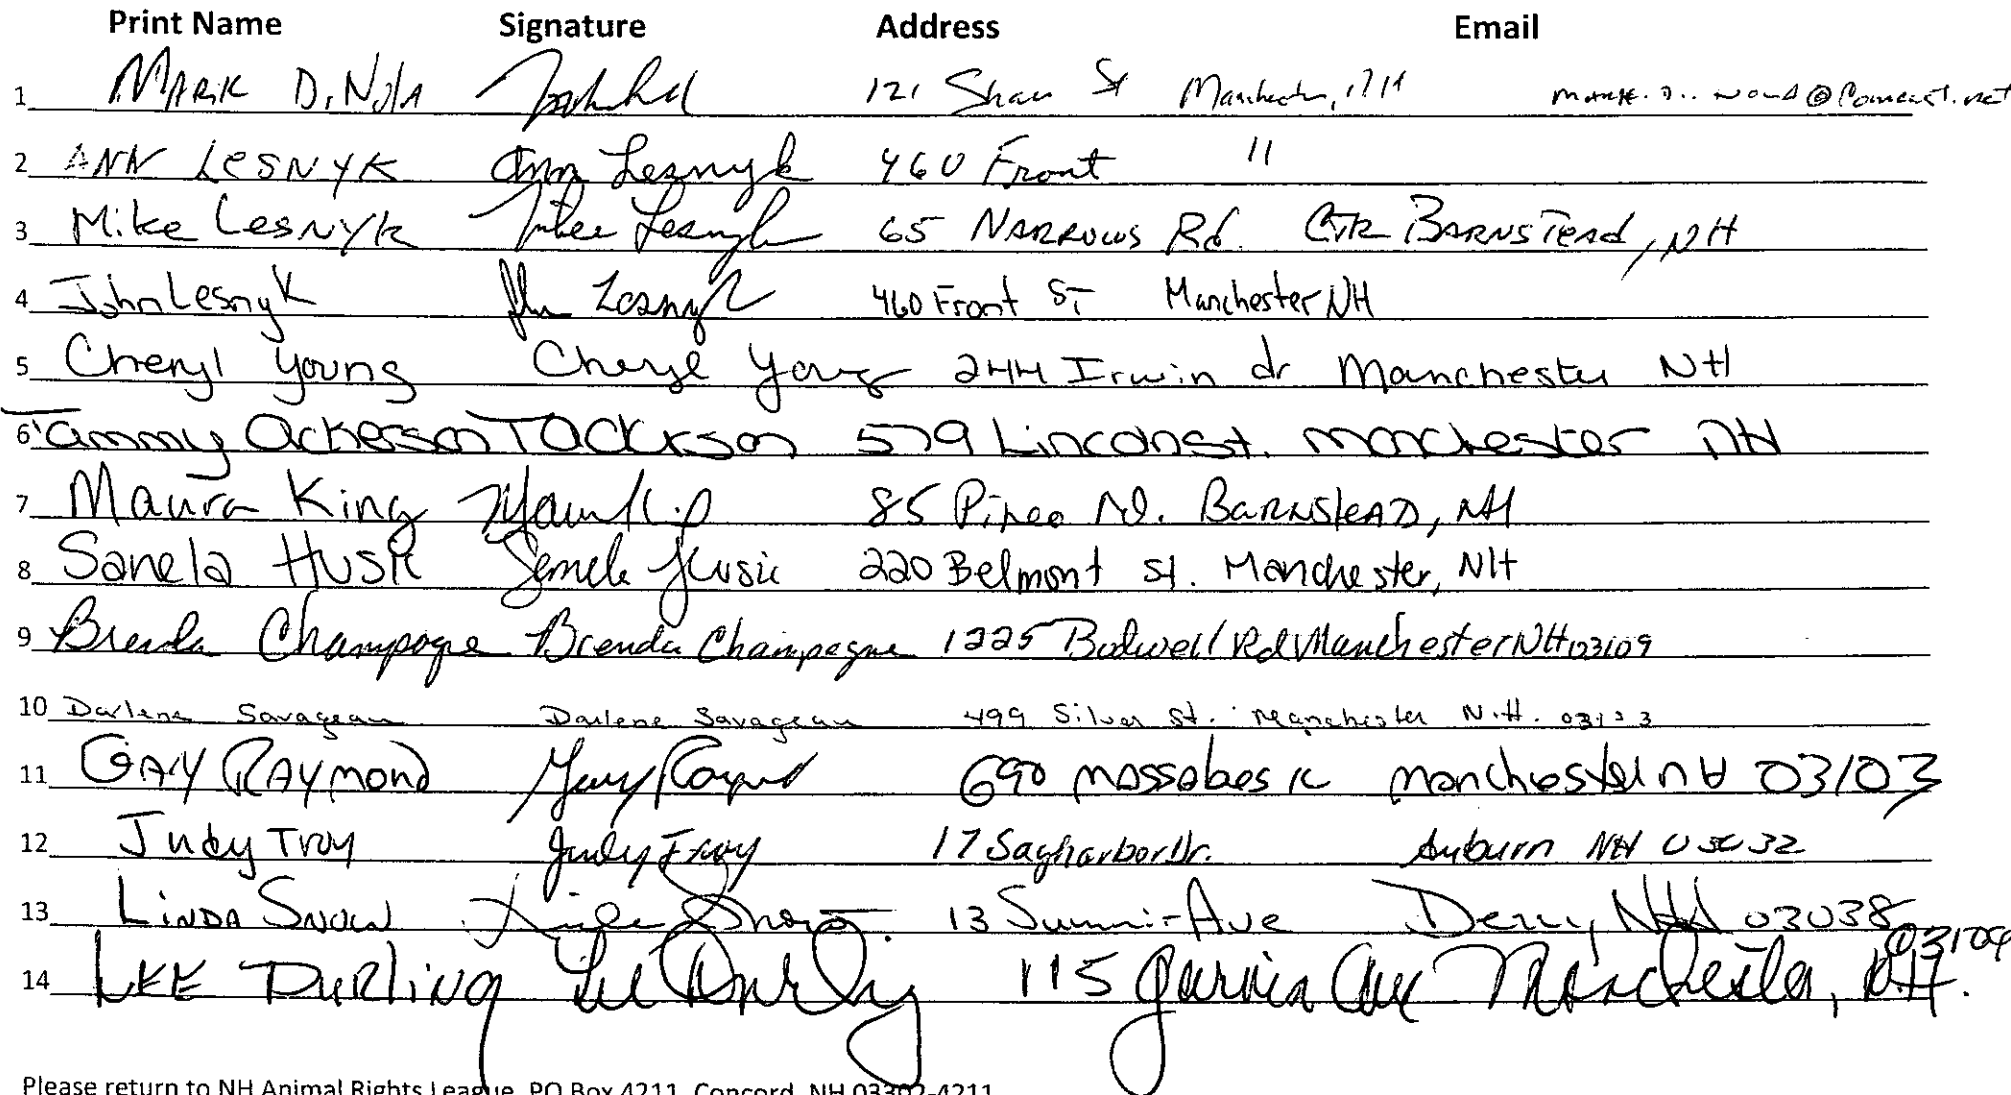 Print Name Signature Address Email
1 Mark DiNola 121 Shaw St Manchester, NH @comcast.net
2 ANN LESNYK Ann Lesnyk 460 Front "
3 Mike LESNYK Mike Lesnyk 65 NARROWS Rd. CTR BARNSTead, NH
4 John Lesnyk John Lesnyk 460 Front ST Manchester NH
5 Cheryl Young Cheryl Young 244 Irwin dr Manchester NH
6 Tammy Ackerson Jackson 579 Linconst. manchester NH
7 Maura King Maura King 85 Pineo Rd. BARNSteAD, NH
8 Sanela Husic Sanela Husic 220 Belmont st. Manchester, NH
9 Brenda Champagne Brenda Champagne 1225 Bodwell Rd Manchester NH 03109
10 Darlene Savageau Darlene Savageau 499 Silver St. Manchester N.H. 03103
11 GARY RAYMOND Gary Raymond 690 massabesic manchester NH 03103
12 Judy Troy Judy Troy 17 Sagharbor Dr. Auburn NH 03032
13 LINDA SNOW Linda Snow 13 Summit Ave Derry, NH 03038
14 LEE DURLING Lee Durling 115 Garvin Ave Manchester, N.H. 03109
Please return to NH Animal Rights League, PO Box 4211, Concord, NH 03302-4211